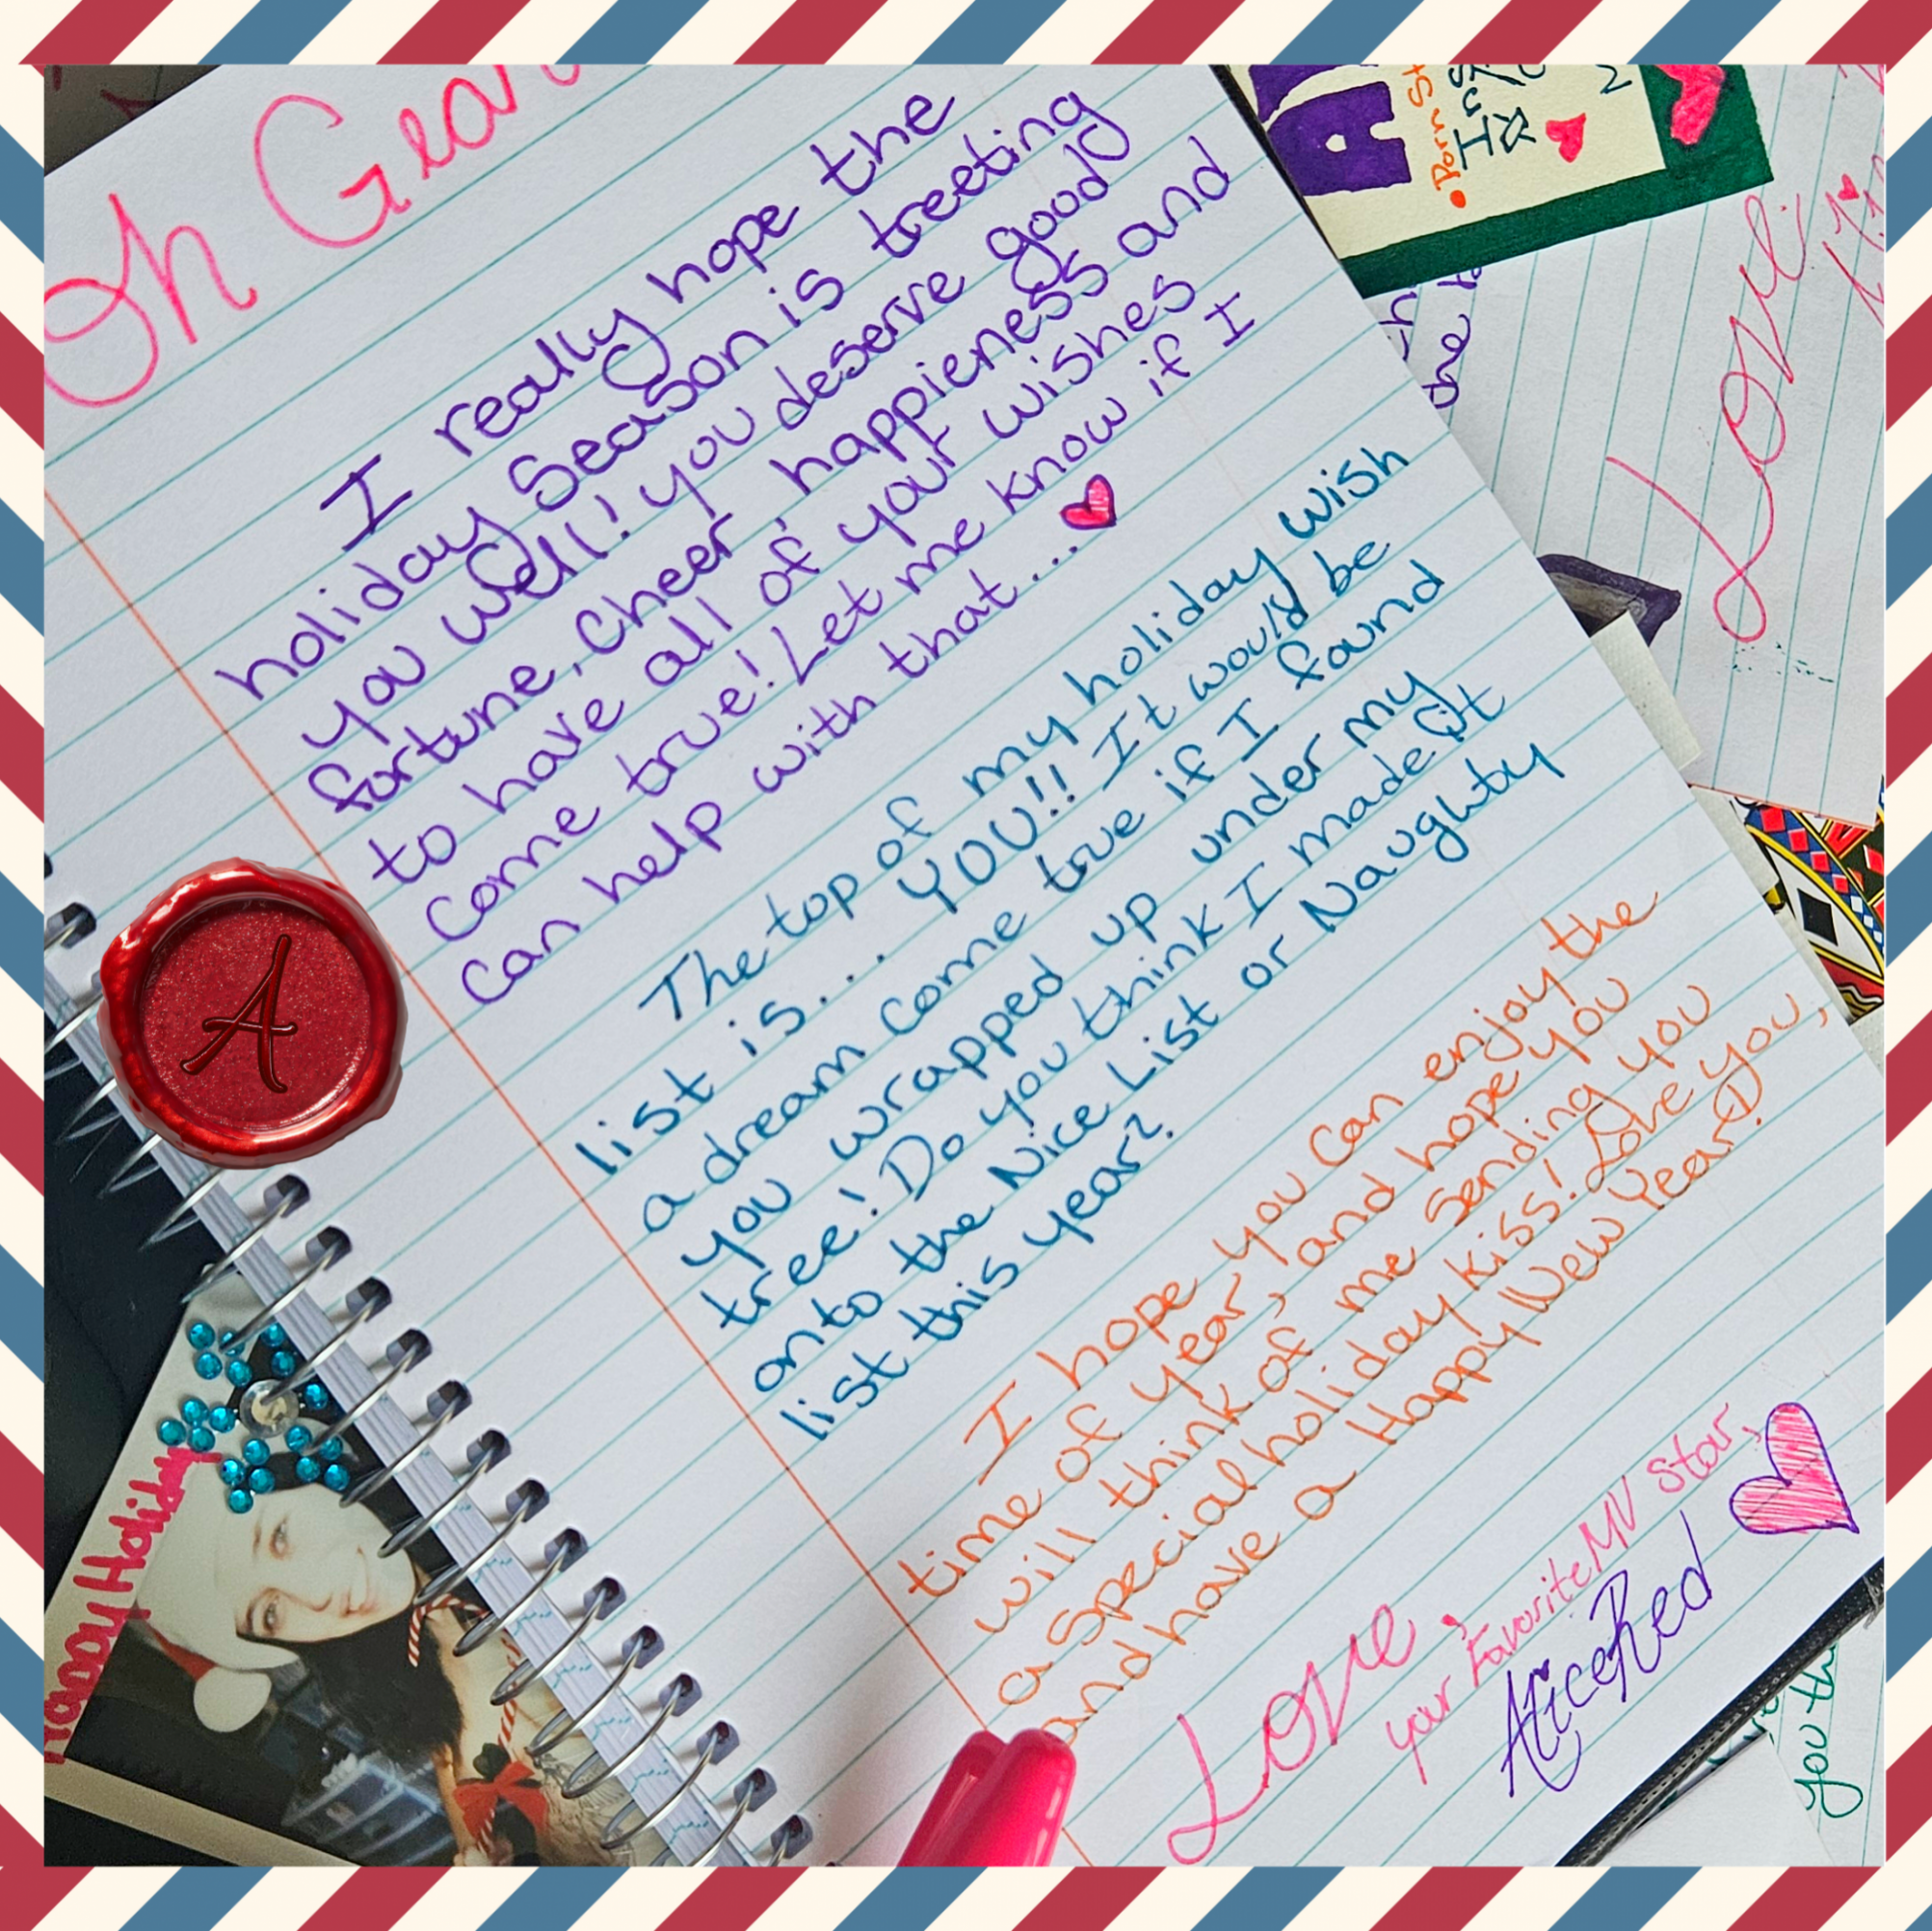 Oh Gear
I really hope the
holiday Season is treeting
you well! you deserve good
fortune, Cheer, happieness and
to have all of your wishes
Come true! Let me know if I
can help with that...
The top of my holiday wish
list is... YOU!! It would be
a dream come true if I found
you wrapped up under my
tree! Do you think I made it
onto the Nice List or Naughty
list this year?
I hope you can enjoy the
time of year, and hope you
will think of me sending you
a special holiday kiss! Love you,
and have a Happy New Year!
Love,
your Favorite MV Star,
AliceRed
A
Happy Holiday
Love,
you